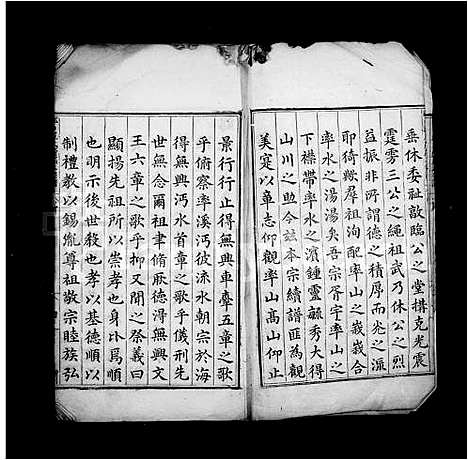 垂休委祉敲臨公之堂搆克光震
霆雱三公之繩祖武乃休公之烈
益振非所謂德之積厚而兆之滙
耶猗歟羣祖洵配率山之峩峩合
率水之湯湯矣吾宗胥宇率山之
下襟帶率水之濱鍾靈毓秀大得
山川之助今玆本宗續譜匪為觀
美寔以章志仰觀率山高山仰止
景行行止得無興車舝五章之歌
乎俯察率溪沔彼流水朝宗於海
得無興沔水首章之歌乎儀刑先
世無念爾祖聿脩厥德得無興文
王六章之歌乎抑又聞之祭義曰
顯揚先祖所以崇孝也身比焉順
也明示後世教也孝以基德順以
制禮教以錫胤尊祖敬宗睦族弘